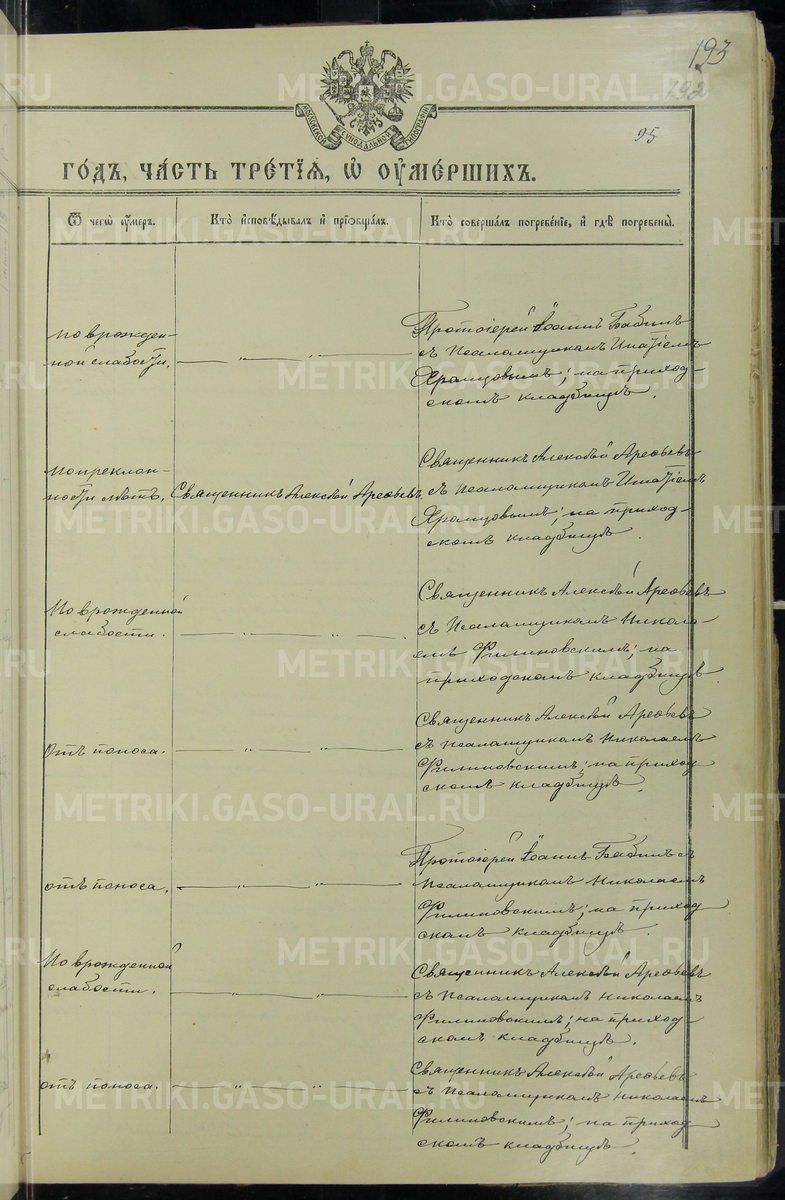 193
192
95
МОСКОВСКОЙ СѴНОДАЛЬНОЙ ТИПОГРАФІИ
ГО́ДЪ, ЧА́СТЬ ТРЕ́ТІѦ, Ѡ҆ ОУ҆МЕ́РШИХЪ.
Ѿ чегѡ̀ оу҆́меръ.
Кто̀ и҆сповѣ́дывалъ и҆ прїѡбща́лъ.
Кто̀ соверша́лъ погребе́нїе, и҆ гдѣ̀ погребены̀.
по врожден-
ной слабости.
— „ — „ —
Протоіерей Іоаннъ Бабинъ
съ Псаломщикомъ Игнатіемъ
на приход-
скомъ кладбищѣ.
по преклон-
ности лѣтъ.
Священникъ Алексѣй Арефьевъ
Священникъ Алексѣй Арефьевъ
съ Псаломщикомъ Игнатіемъ
на приход-
скомъ кладбищѣ.
По врожденной
слабости.
— „ — „ —
Священникъ Алексѣй Арефьевъ
съ Псаломщикомъ Никола-
емъ Филиновскимъ; на
приходскомъ кладбищѣ.
Отъ поноса.
— „ — „ —
Священникъ Алексѣй Арефьевъ
съ псаломщикомъ Николаемъ
Филиновскимъ; на приход
скомъ кладбищѣ.
отъ поноса.
— „ — „ —
Протоіерей Іоаннъ Бабинъ съ
Псаломщикомъ Николаемъ
Филиновскимъ; на приход
скомъ кладбищѣ.
По врожденной
слабости.
— „ — „ —
Священникъ Алексѣй Арефьевъ
съ Псаломщикомъ Николаемъ
Филиновскимъ; на приход-
скомъ кладбищѣ.
отъ поноса.
— „ — „ —
Священникъ Алексѣй Арефьевъ
съ Псаломщикомъ Николаемъ
Филиновскимъ; на приход
скомъ кладбищѣ.
METRIKI.GASO-URAL.RU